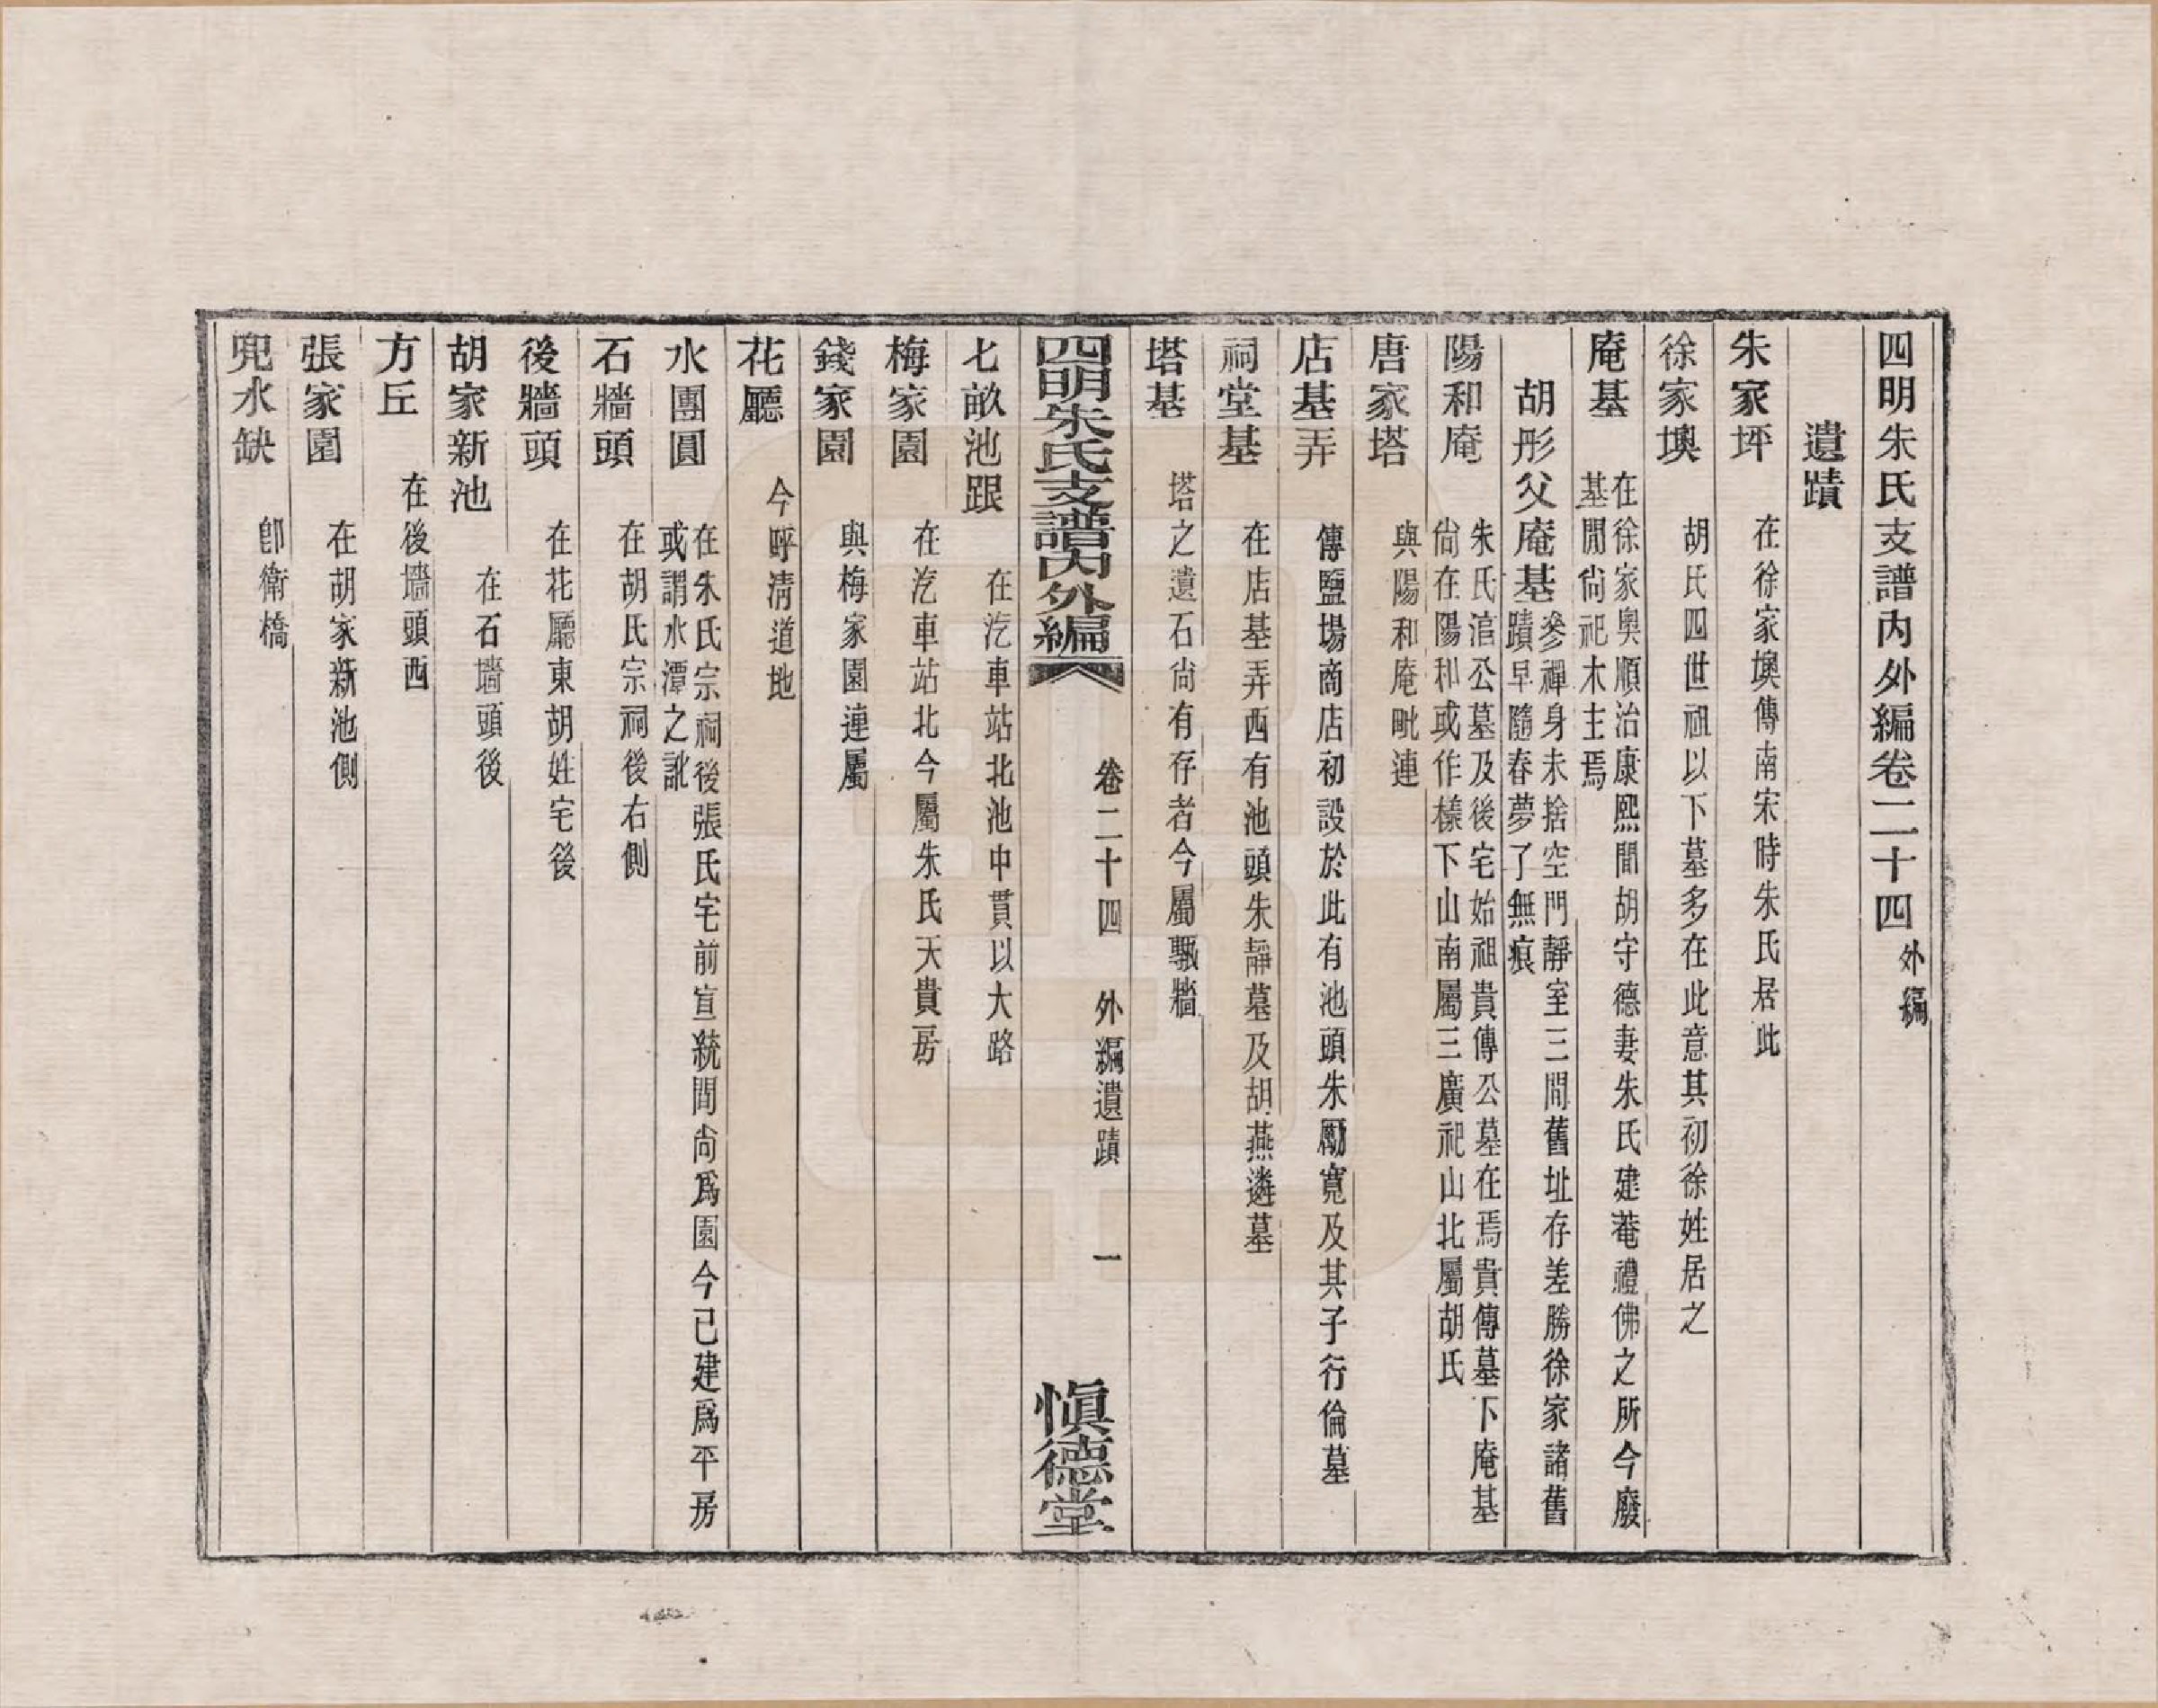 四明朱氏支譜內外編卷二十四 外編
遺蹟
朱家坪 在徐家墺傳南宋時朱氏居此
徐家墺 胡氏四世祖以下墓多在此意其初徐姓居之
庵基 在徐家奧順治康熙間胡守德妻朱氏建菴禮佛之所今廢
基閒尙祀木主焉
胡彤父庵基 參禪身未捨空門靜室三間舊址存差勝徐家諸舊
蹟早隨春夢了無痕
陽和庵 朱氏涫公墓及後宅始祖貴傳公墓在焉貴傳墓下庵基
尙在陽和或作樣下山南屬三廣祀山北屬胡氏
唐家塔 與陽和庵毗連
店基弄 傳鹽場商店初設於此有池頭朱勵寬及其子行倫墓
祠堂基 在店基弄西有池頭朱靜墓及胡燕遴墓
塔基 塔之遺石尙有存者今屬驅牆
四明朱氏支譜內外編 卷二十四 外編遺蹟 一 愼德堂
七畝池跟 在汔車站北池中貫以大路
梅家園 在汔車站北今屬朱氏天貴房
錢家園 與梅家園連屬
花廳 今呼淸道地
水團圓 在朱氏宗祠後張氏宅前宣統間尙爲園今已建爲平房
或謂水潭之訛
石牆頭 在胡氏宗祠後右側
後牆頭 在花廳東胡姓宅後
胡家新池 在石墻頭後
方丘 在後墻頭西
張家園 在胡家新池側
兜水缺 卽衛橋